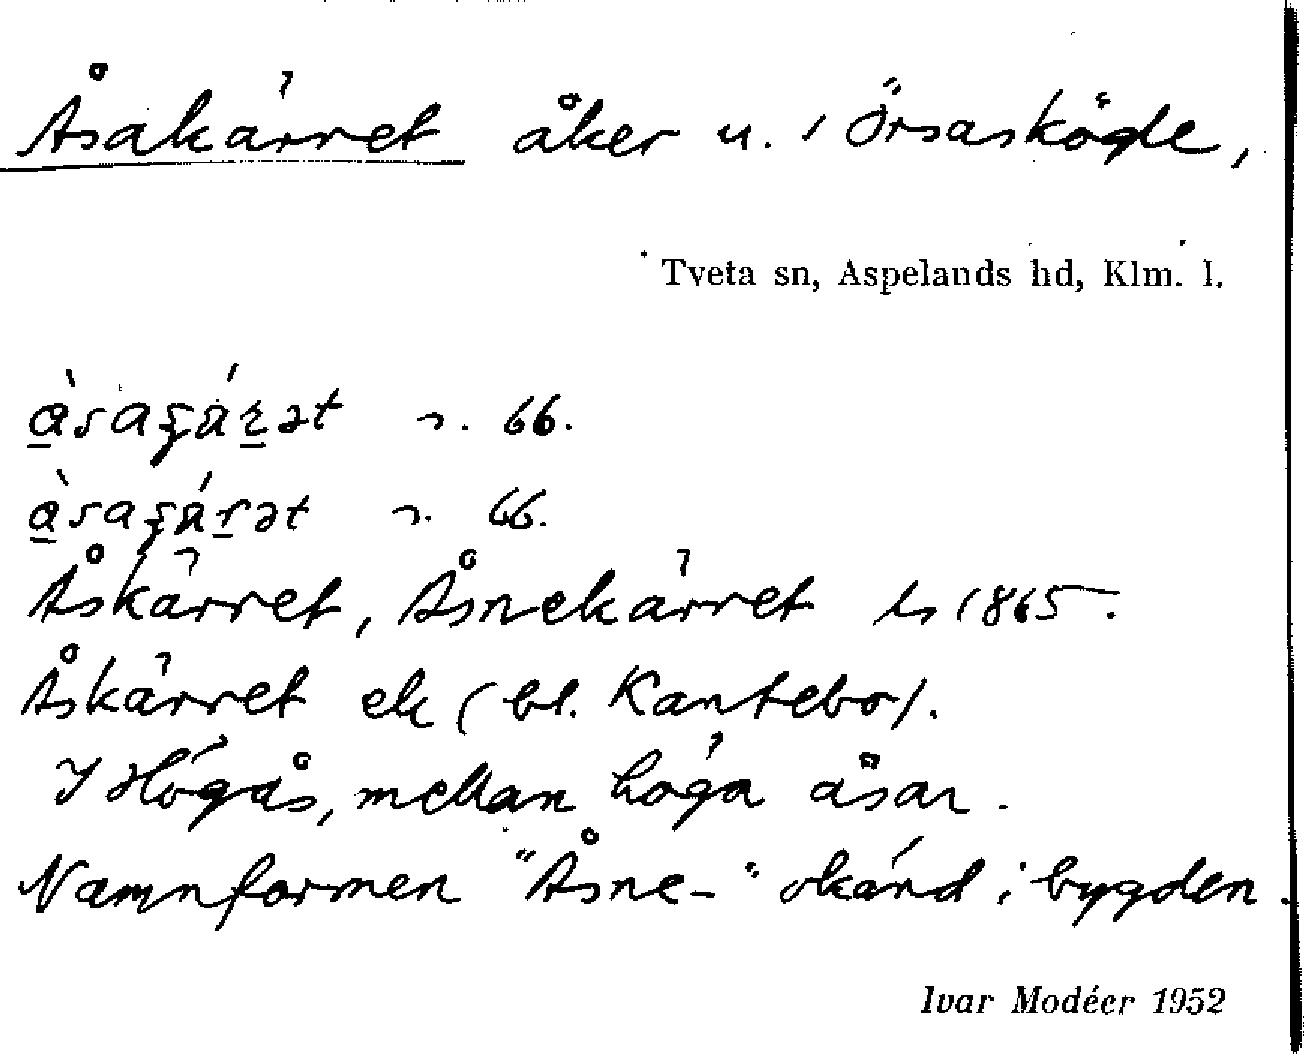 Åsakärret åker u. i Örsasköğle,
Tveta sn, Aspelands hd, Klm. l.
n. 66.
n. 66.
Åskärret, Åsnekärret ls 1865.
Åskärret ek (bl. Kantebo).
I Högås, mellan höga åsar.
Namnformen "Åsne-" okänd i bygden.
Ivar Modéer 1952